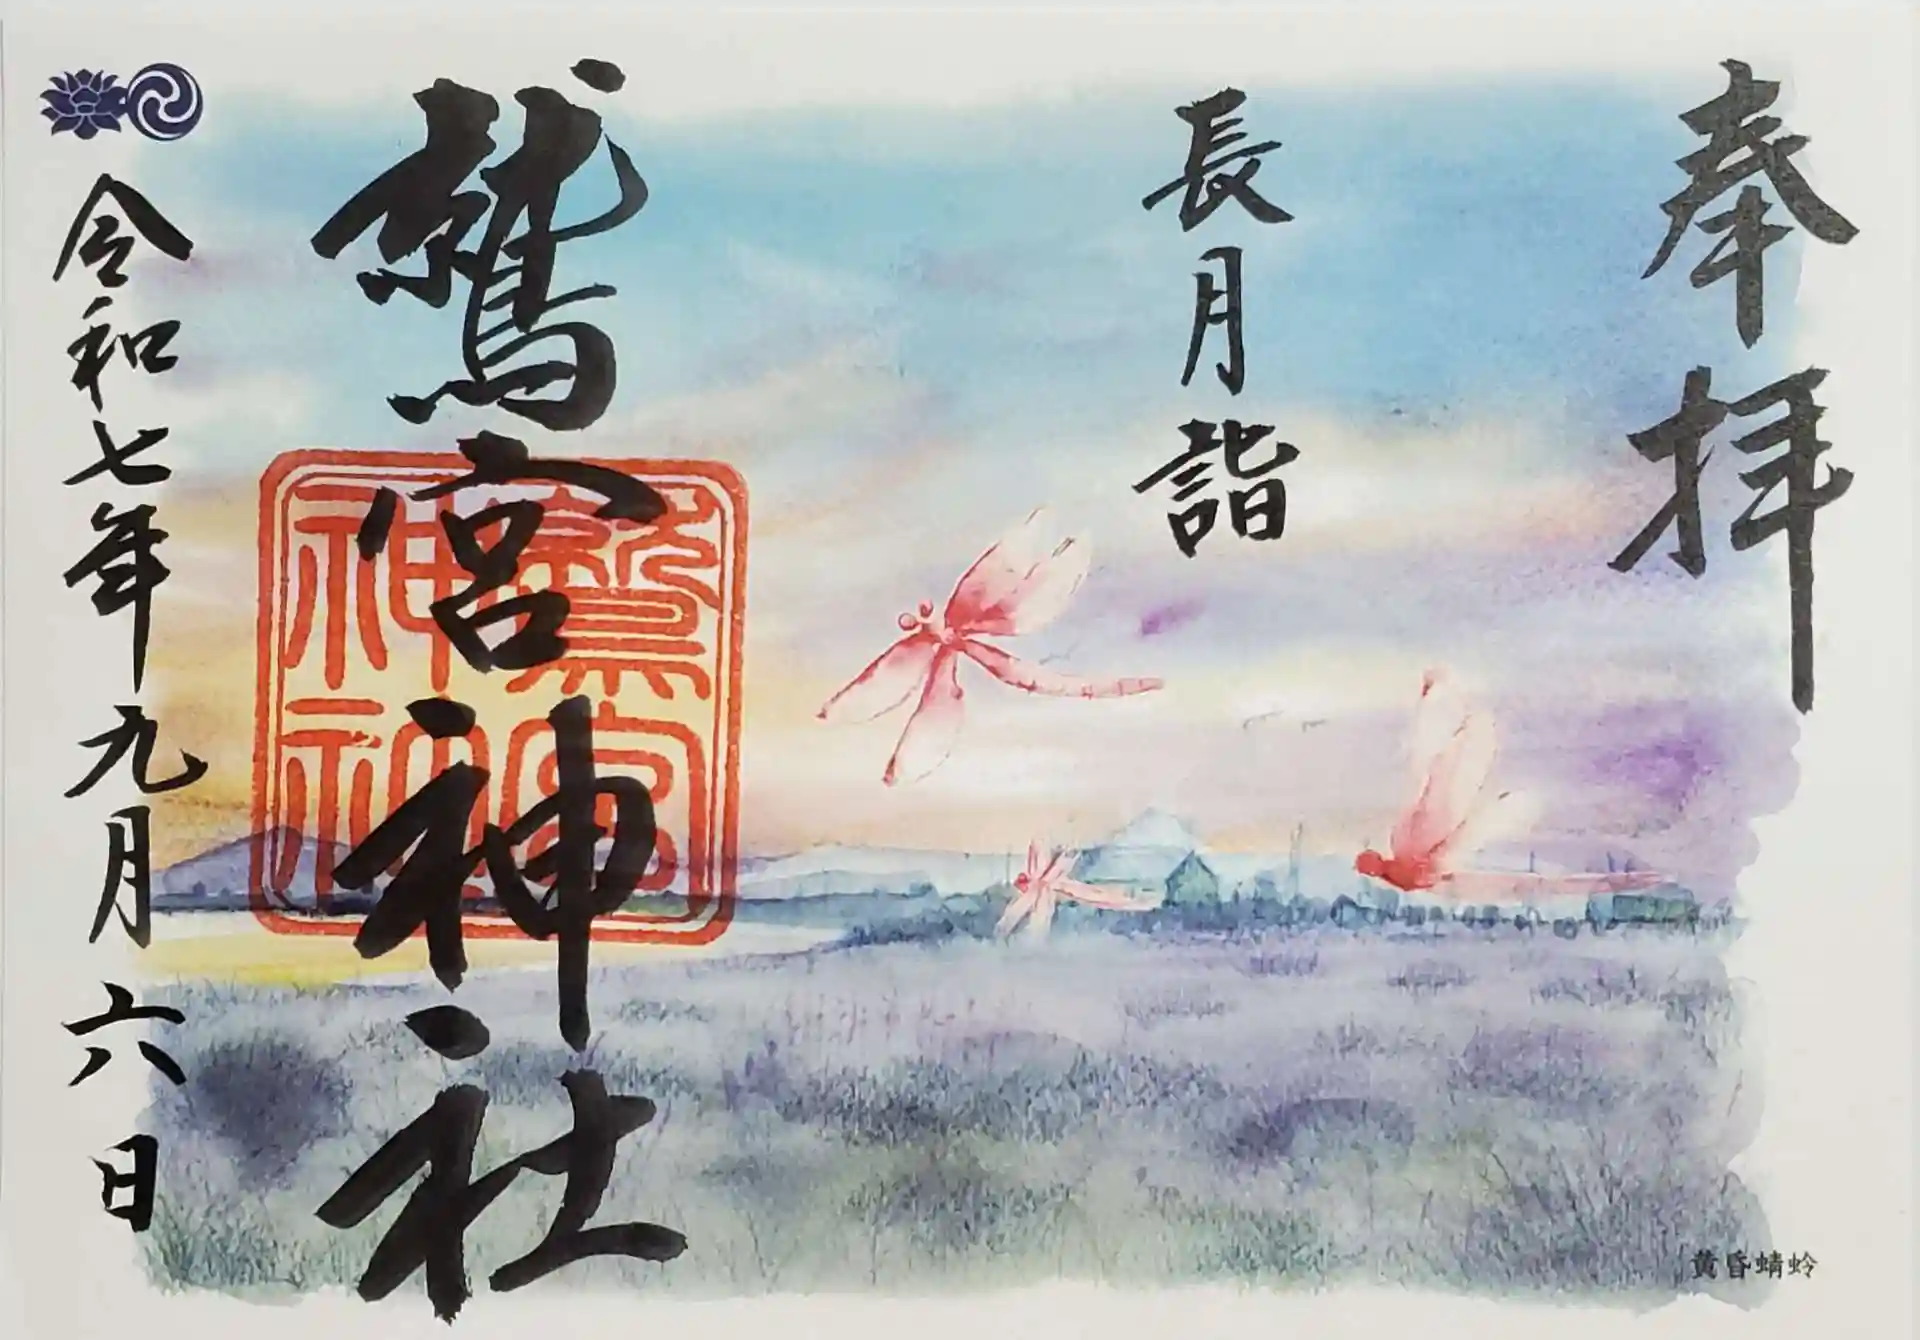 奉拝
長月詣
鷲宮神社
鷲宮神社
令和七年九月六日
黄昏蜻蛉